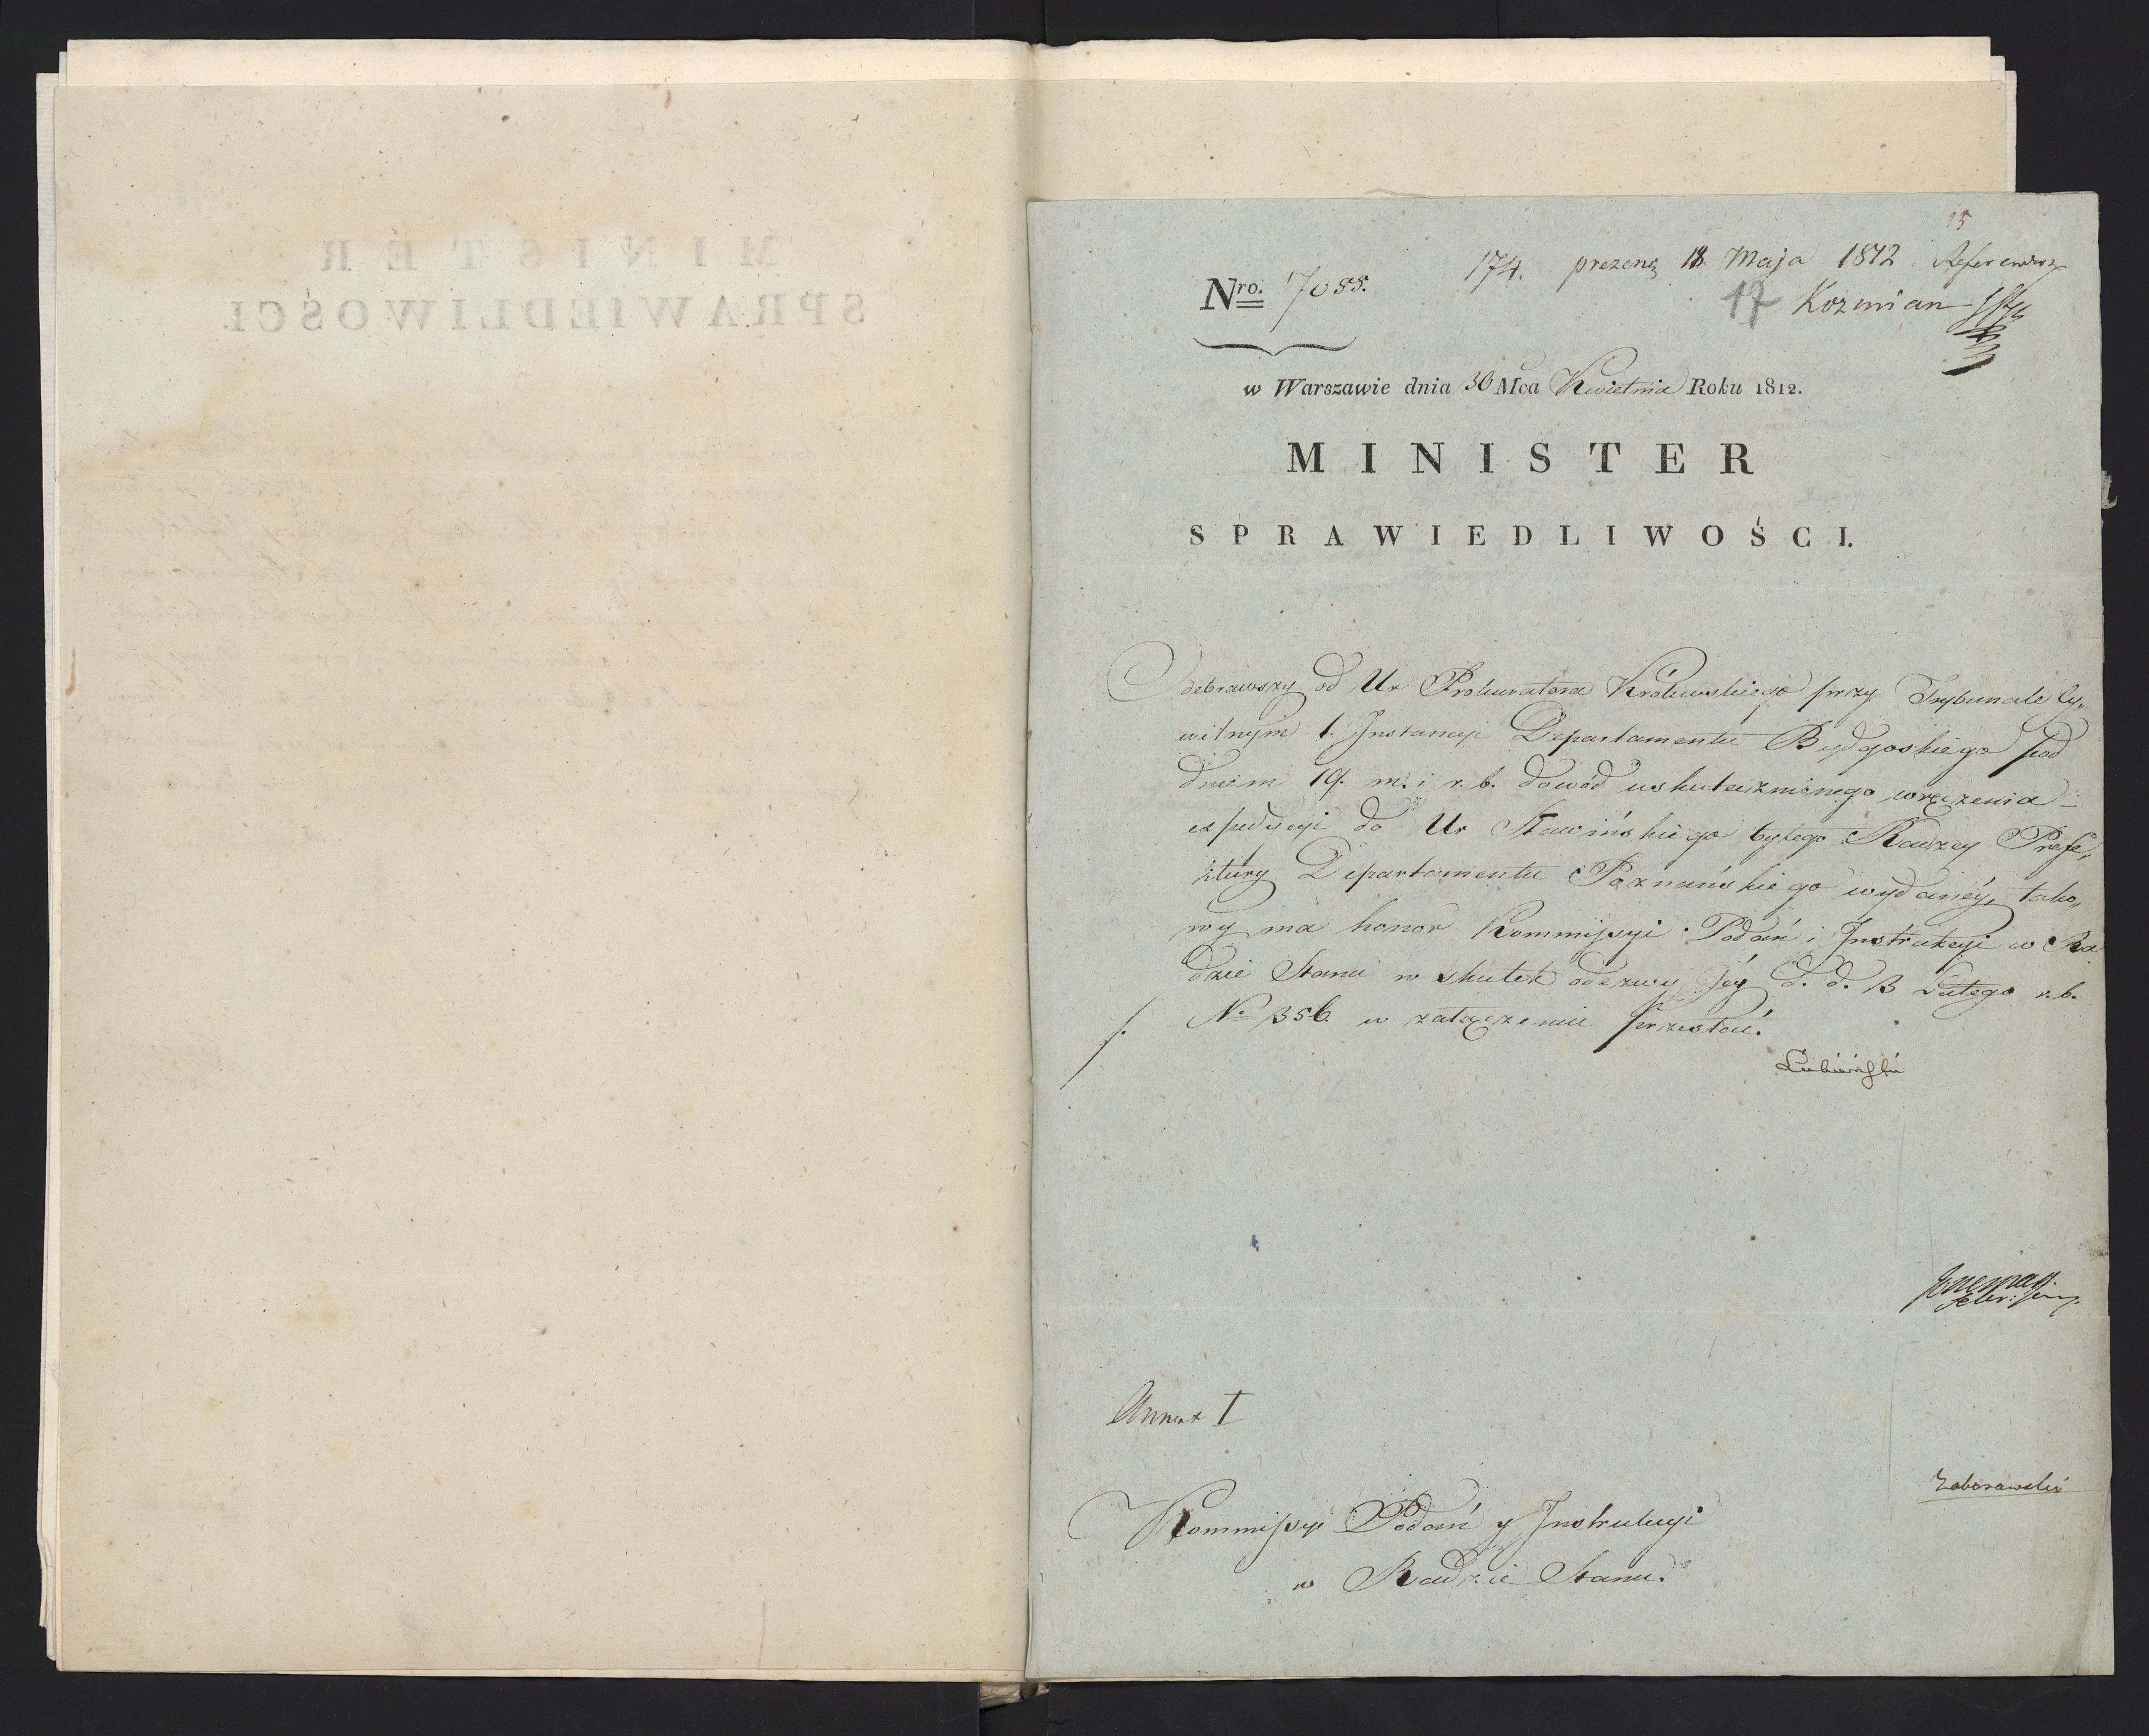 MINISTER
SPRAWIEDLIWOŚCI.
15
174. prezent 18 Maja 1812 Referendarz
Nro. 7055.
17 Kozmian
w Warszawie dnia 30 Mca Kwietnia Roku 1812.
MINISTER
SPRAWIEDLIWOŚCI.
Odebrawszy od Ur Prokuratora Królewskiego przy Trybunale Cy„
wilnym 1. Instancyi Departamentu Bydgoskiego pod
dniem 19. m. i r. b. dowód uskutecznionego wręczenia
expedycyi do Ur Sławińskiego byłego Radzcy Prefe„
ktury Departamentu Poznańskiego wydanéy, tako„
wy ma honor Kommissyi Podań i Instrukcyi w Ra
dzie Stanu w skutek odezwy Jéy d. d. 13 Lutego r. b.
No 356. w załączeniu przesłać.
Łubieński
Annex I
Zaborowski
Kommissyi Podań y Instrukcyi
w Radzie Stanu.